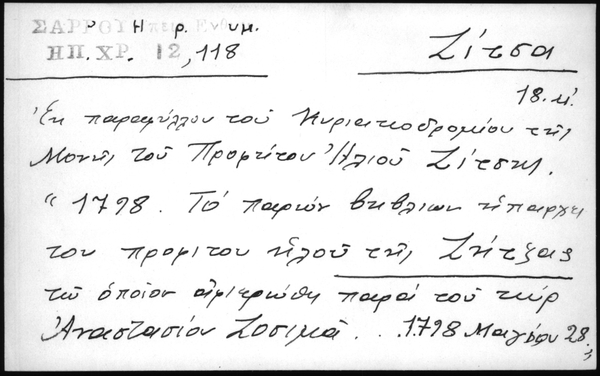 ΣΑΡΡΟΥ Ἠπειρ. Ἐνθυμ.
ΗΠ. ΧΡ. 12, 118
Ζίτσα
18.κ.
Ἐκ παραφύλλου τοῦ Κυριακοδρομίου τῆς
Μονῆς τοῦ Προφήτου Ἠλιοῦ Ζίτσης.
"1798. Τό παρών βηβλιων ηπαρχι
του προφιτου ηλοῦ τῆς Ζήτζας
τω ὁποῖον αφιερώθη παρά τοῦ κύρ
Ἀναστασίου Ζοσιμᾶ... 1798 Μαγίου 28